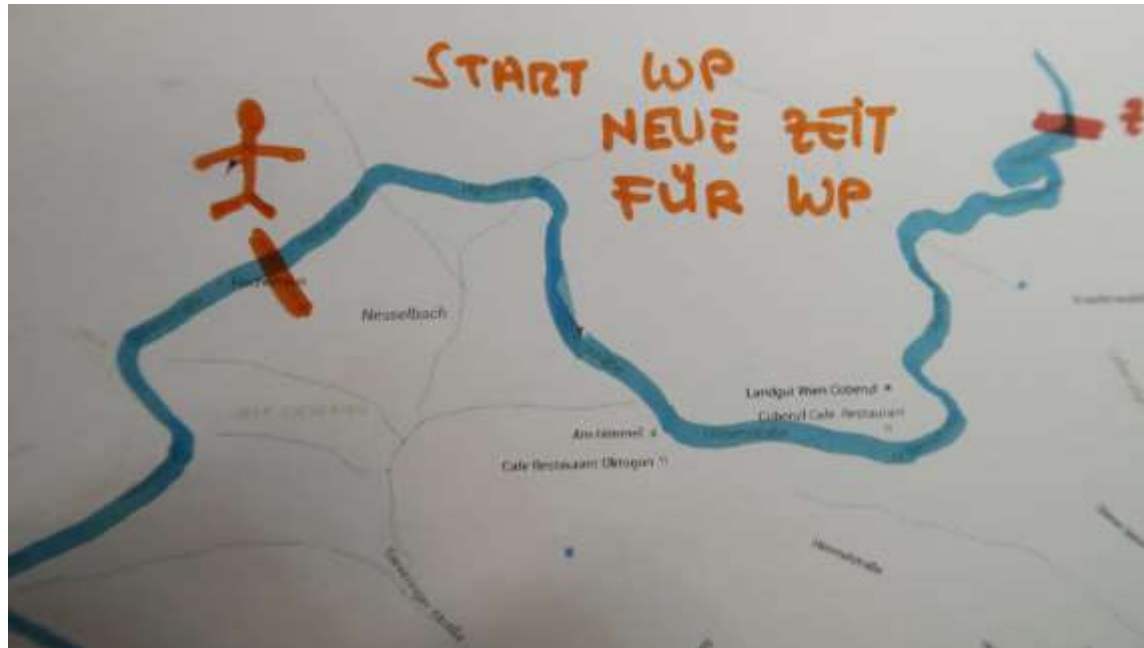 START WP
NEUE ZEIT
FÜR WP
Z
Nesselbach
Landgut Wien Cobenzl
Cobenzl Cafe Restaurant
Am Himmel
Cafe Restaurant Oktogon
Himmelstraße
Sieveringer Straße